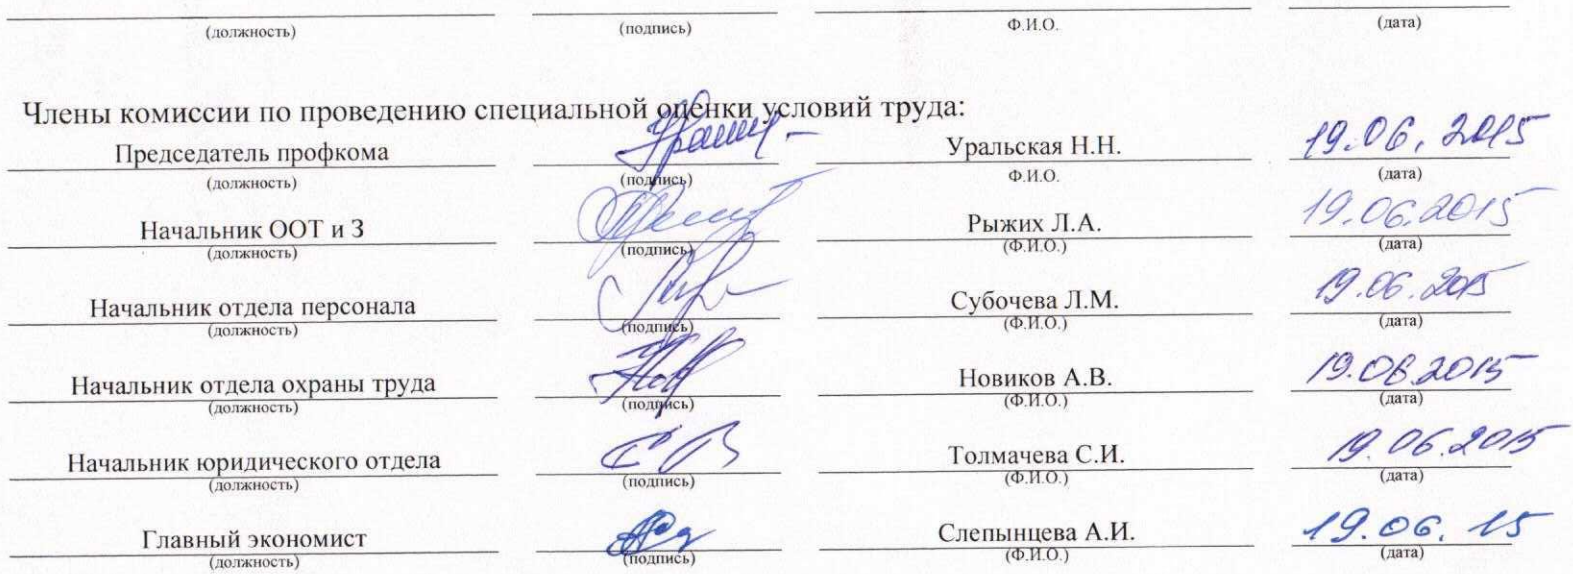 (должность) (подпись) Ф.И.О. (дата)
Члены комиссии по проведению специальной оценки условий труда:
Председатель профкома Уральская Н.Н. 19.06.2015
(должность) (подпись) Ф.И.О. (дата)
Начальник ООТ и З Рыжих Л.А. 19.06.2015
(должность) (подпись) (Ф.И.О.) (дата)
Начальник отдела персонала Субочева Л.М. 19.06.2015
(должность) (подпись) (Ф.И.О.) (дата)
Начальник отдела охраны труда Новиков А.В. 19.06.2015
(должность) (подпись) (Ф.И.О.) (дата)
Начальник юридического отдела Толмачева С.И. 19.06.2015
(должность) (подпись) (Ф.И.О.) (дата)
Главный экономист Слепынцева А.И. 19.06.15
(должность) (подпись) (Ф.И.О.) (дата)